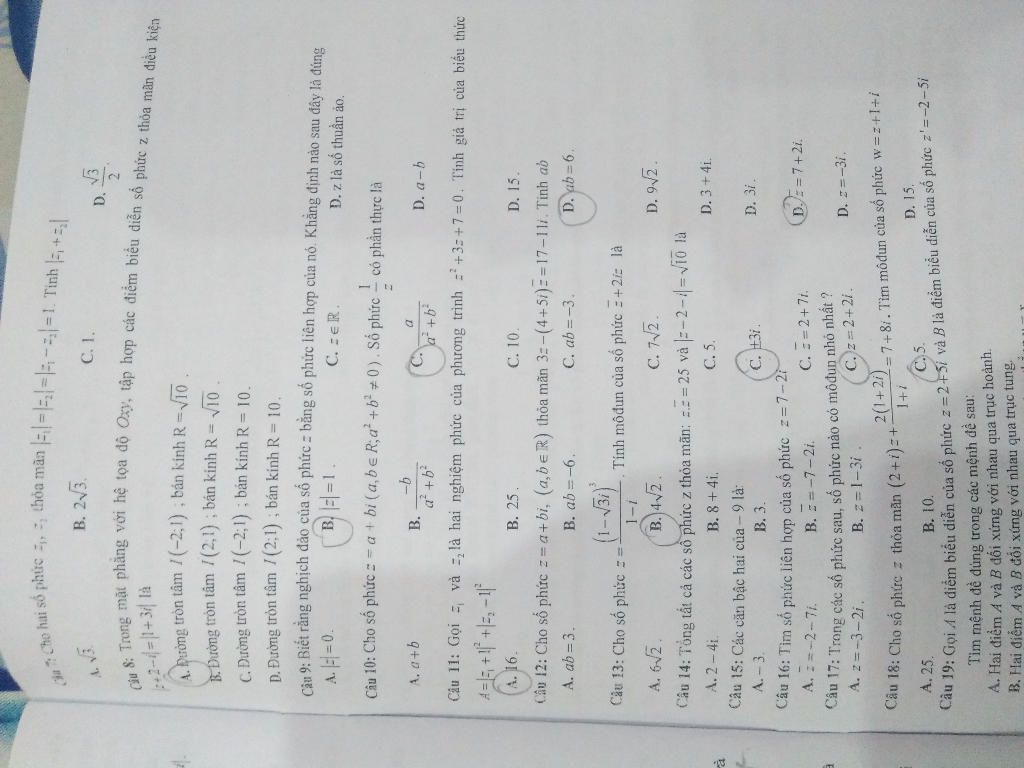 Câu 7: Cho hai số phức z₁, z₂ thỏa mãn |z₁| = |z₂| = |z₁ − z₂| = 1. Tính |z₁ + z₂|
A. √3. B. 2√3. C. 1. D. √3/2.
Câu 8: Trong mặt phẳng với hệ tọa độ Oxy, tập hợp các điểm biểu diễn số phức z thỏa mãn điều kiện
|z + 2 − i| = |1 + 3i| là
A. Đường tròn tâm I(−2;1) ; bán kính R = √10 .
B. Đường tròn tâm I(2;1) ; bán kính R = √10 .
C. Đường tròn tâm I(−2;1) ; bán kính R = 10.
D. Đường tròn tâm I(2;1) ; bán kính R = 10.
Câu 9: Biết rằng nghịch đảo của số phức z bằng số phức liên hợp của nó. Khẳng định nào sau đây là đúng
A. |z| = 0. B. |z| = 1 . C. z ∈ ℝ . D. z là số thuần ảo.
Câu 10: Cho số phức z = a + bi (a, b ∈ R; a² + b² ≠ 0). Số phức 1/z có phần thực là
A. a + b B. −b/(a² + b²) C. a/(a² + b²) D. a − b
Câu 11: Gọi z₁ và z₂ là hai nghiệm phức của phương trình z² + 3z + 7 = 0. Tính giá trị của biểu thức
A = |z₁ + 1|² + |z₂ − 1|²
A. 16. B. 25 . C. 10. D. 15 .
Câu 12: Cho số phức z = a + bi, (a, b ∈ ℝ) thỏa mãn 3z − (4 + 5i)z̄ = 17 − 11i. Tính ab
A. ab = 3 . B. ab = −6. C. ab = −3. D. ab = 6 .
Câu 13: Cho số phức z = (1 − √3i)³/(1 − i) . Tính môđun của số phức z̄ + 2iz là
A. 6√2 . B. 4√2 . C. 7√2 . D. 9√2 .
Câu 14: Tổng tất cả các số phức z thỏa mãn: z.z̄ = 25 và |z − 2 − i| = √10 là
A. 2 − 4i. B. 8 + 4i. C. 5. D. 3 + 4i.
Câu 15: Các căn bậc hai của − 9 là:
A. − 3. B. 3. C. ±3i. D. 3i .
Câu 16: Tìm số phức liên hợp của số phức z = 7 − 2i
A. z̄ = −2 − 7i. B. z̄ = −7 − 2i. C. z̄ = 2 + 7i. D. z̄ = 7 + 2i.
Câu 17: Trong các số phức sau, số phức nào có môđun nhỏ nhất ?
A. z = −3 − 2i. B. z = 1 − 3i . C. z = 2 + 2i . D. z = −3i.
Câu 18: Cho số phức z thỏa mãn (2 + i)z + 2(1 + 2i)/(1 + i) = 7 + 8i. Tìm môđun của số phức w = z + 1 + i
A. 25. B. 10. C. 5. D. 15.
Câu 19: Gọi A là điểm biểu diễn của số phức z = 2 + 5i và B là điểm biểu diễn của số phức z' = −2 − 5i
Tìm mệnh đề đúng trong các mệnh đề sau:
A. Hai điểm A và B đối xứng với nhau qua trục hoành.
B. Hai điểm A và B đối xứng với nhau qua trục tung.